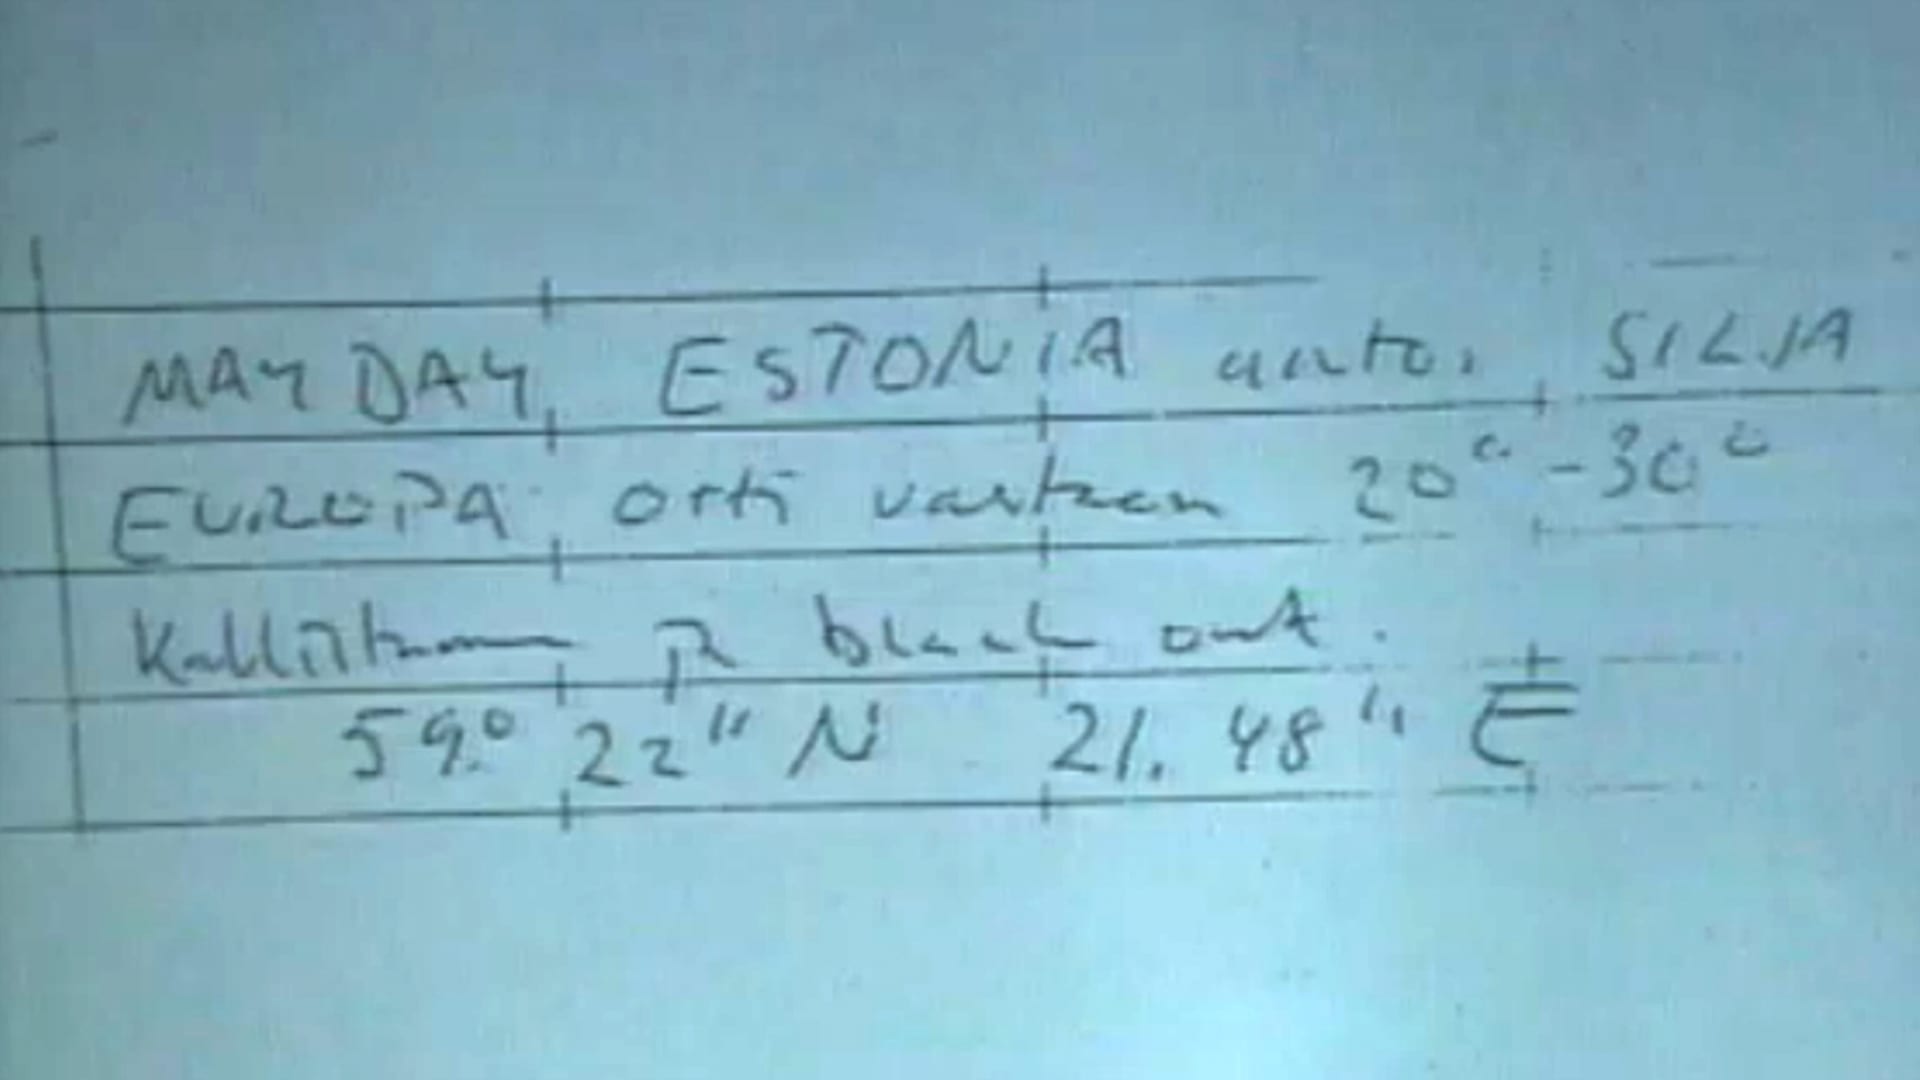 MAYDAY, ESTONIA antoi SILJA
EUROPA otti vastaan 20° -30°
Kallistuma ja black out.
59.° 22" N 21. 48" E